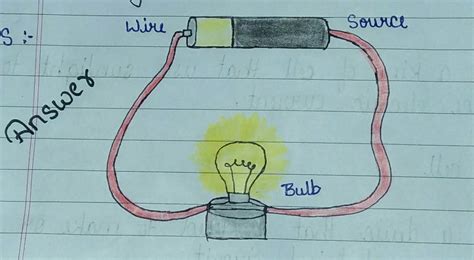 Wire
Source
s :-
Answer
Bulb